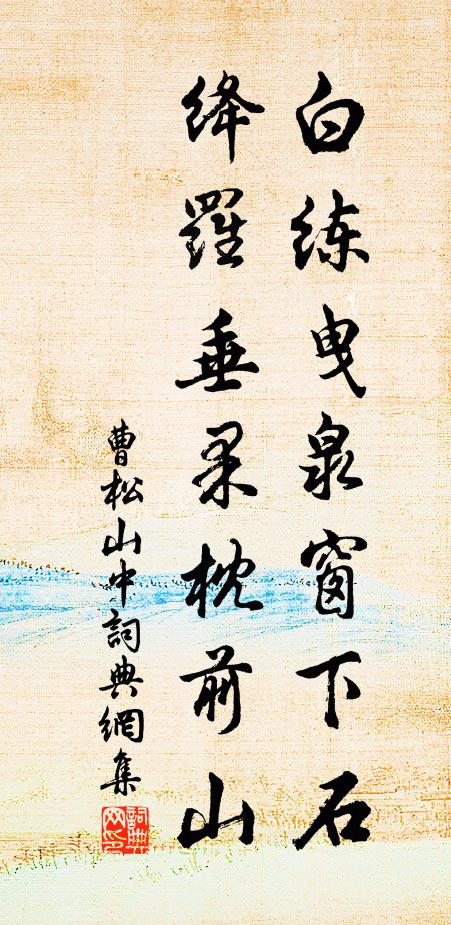 白练曳泉窗下石
绛罗垂果枕前山
曹松山中詞典網集
詞典网印